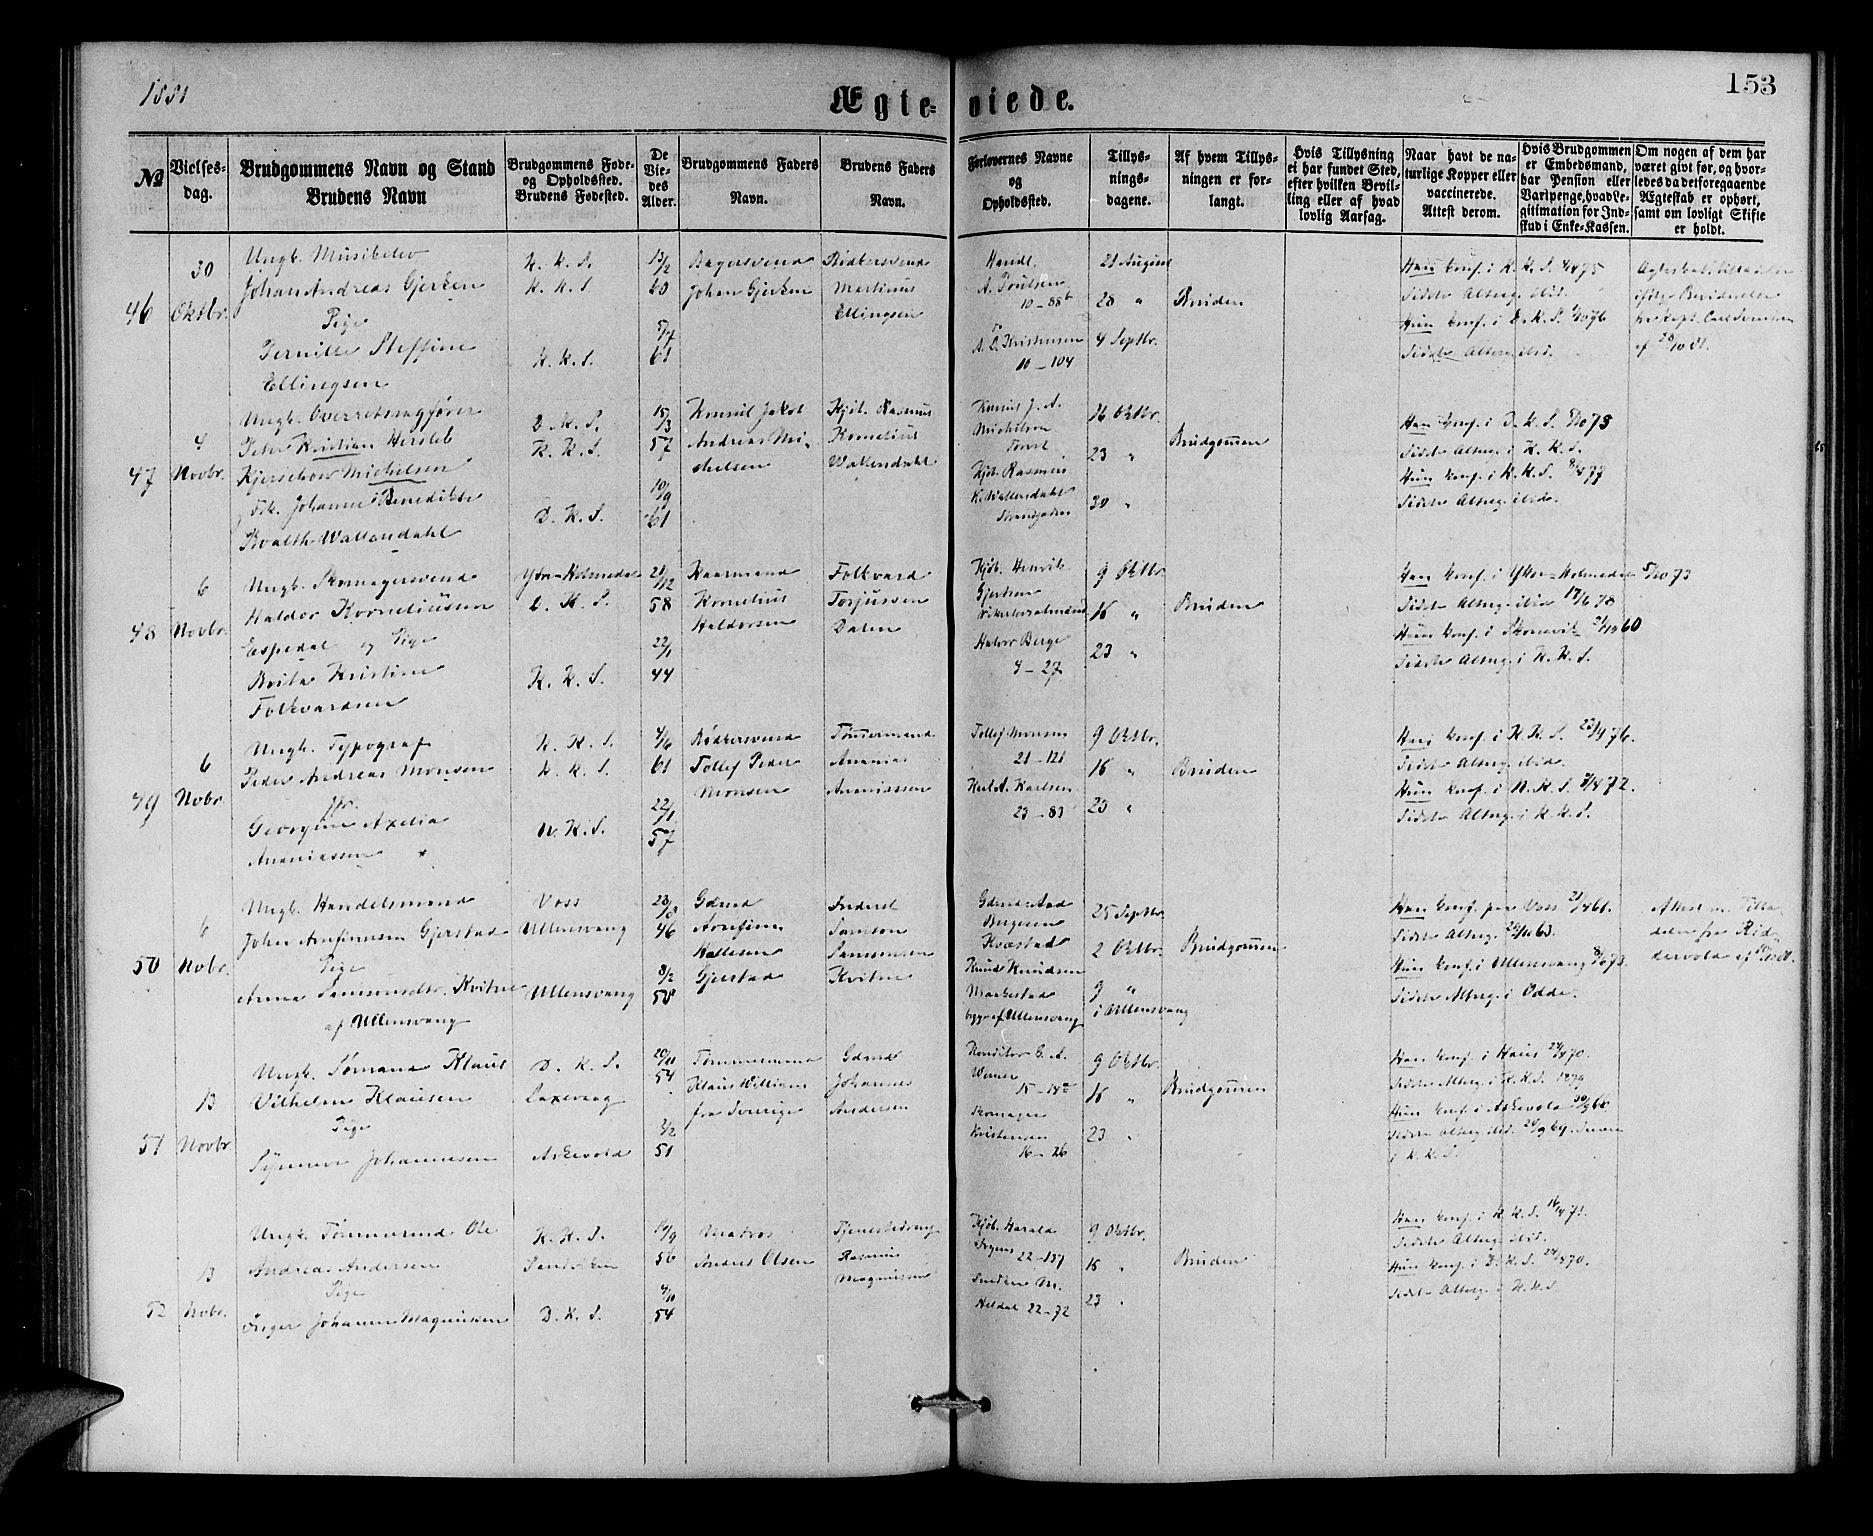 1881
153
Ægte=
viede.
№
Vielses-
dag.
Brudgommens Navn og Stand
Brudens Navn
Brudgommens Føde-
og Opholdssted.
Brudens Fødested.
De
Vie-
des
Alder.
Brudgommens Faders
Navn.
Brudens Faders
Navn.
Forlovernes Navne
og
Opholdssted.
Tillys-
nings-
dagene.
Af hvem Tillys-
ningen er for-
langt.
Hvis Tillysning
ei har fundet Sted,
efter hvilken Bevil-
ling eller af hvad
lovlig Aarsag.
Naar havt de na-
turlige Kopper eller
vaccinerede.
Attest derom.
Hvis Brudgommen
er Embedsmand,
har Pension eller
Varipenge, hvad Le-
gitimation for Ind-
skud i Enke-Kassen.
Om nogen af dem har
været givt før, og hvor-
ledes da det foregaaende
Ægteskab er ophørt,
samt om lovligt Skifte
er holdt.
46
30
Oktbr.
Ungk. Musikelev
Johan Andreas Gjerken
Pige
Pernille Steffine
Ellingsen
K. K. S.
K. K. S.
K. K. S.
13/2
60
5/7
61
Bagersvend
Johan Gjerken
Bødkersvend
Martinus
Ellingsen
Handl.
A. Poulsen
10 – 88b
10 – 104
21 August
28 "
4 Septbr.
Bruden
Han konf. i K. K. S. 4/4 75
Sidste Alterg. ibid.
Hun konf. i D. K. S. 76
Sidste Alterg. ibid.
47
4
Novbr.
Ungk. Overretssagfører
Peter Kristian Hersleb
Kjerschow Michelsen
Frk. Johanne Benedikte
Wallendahl
D. K. S.
K. K. S.
D. K. S.
15/3
57
10/9
61
Konsul Jakob
Andreas Mi-
chelsen
Kjøb. Rasmus
Kornelius
Wallendahl
Konsul J. A.
Michelsen
Torvet
Kjøb. Rasmus
K. Wallendahl
Strandgaden
16 Oktbr.
23 "
30 "
Brudgommen
Han konf. i D. K. S. 73
Sidste Alterg. i K. K. S.
Hun konf. i K. K. S. 8/4 77
Sidste Alterg. ibid.
48
6
Novbr.
Ungk. Skomagersvend
Haldor Korneliussen
Espedal og Pige
Brita Kristine
Folkvardsen
Ytre-Holmedal
D. K. S.
K. K. S.
21/12
58
22/1
44
Kaarmand
Kornelius
Haldorsen
Folkvard
Torjussen
Dalen
Kjøb. Henrik
Gjertsen
Halvor Berge
4 – 27
9 Oktbr.
16 "
23 "
Bruden
Han konf. i Ytre-Holmedal 5/10 73
Sidste Alterg. ibid 17/6 78
Hun konf. i Skonevik 60
Sidste Alterg. i K. K. S.
49
6
Nobr.
Ungk. Typograf
Peder Andreas Monsen
Georgine Axelia
Ananiassen
K. K. S.
K. K. S.
N. K. S.
4/6
61
22/1
57
Bødkersvend
Tollef Peder
Monsen
Tømmermand
Ananias
Ananiassen
Tollef Monsen
21 – 121
Karl A. Karlsen
23 – 83
9 Oktbr.
16 "
23 "
Bruden
Han konf. i K. K. S. 23/4 76.
Sidste Alterg. ibid.
Hun konf. i N. K. S. 72.
Sidste Alterg. i K. K. S.
50
6
Nobr.
Ungk. Handelsmand
John Arnfinnsen Gjerstad
Pige
Anna Samsonsdtr. Kvitne
af Ullensvang
Voss
Ullensvang
Ullensvang
28/8
46
8/2
58
Gdmd
Arnfinn
Hallesen
Gjestad
Inderst
Samson
Samsonsen
Kvitne
Gdmd. Aad
Bergesen
Kvæstad
Knud Knudsen
Maakestad
begge af Ullensvang
25 Septbr.
2 Oktbr.
9 "
i Ullensvang
Brudgommen
Han konf. paa Voss 21/4 61.
Sidste Alterg. 63.
Hun konf. i Ullensvang 73.
Sidste Alterg. i Odde.
51
13
Novbr.
Ungk. Sømand Klaus
Vilhelm Klausen
Pige
Synneve Johannesen
D. K. S.
Laxevaag
Askevold
20/11
54
3/2
51
Tømmermand
Klaus William
fra Sverige
Gdmd
Johannes
Andersen
Konditor G. A.
Werner
Skomager
Kristensen
16 – 26
9 Oktbr.
16 "
23 "
Brudgommen
Han konf. i Haus 24/4 70.
Sidste Alterg. i K. K. S. 1879
Hun konf. i Askevold
i K. K. S.
52
13
Nobr.
Ungk. Tømmermd. Ole
Andreas Andersen
Pige
Inger Johanne Magnussen
K. K. S.
Sandviken
D. K. S.
14/9
56
4/10
54
Matros
Andres Olsen
Rasmus
Magnussen
Kjøb. Harald
22 – 137
Snedker M.
Heldal 22 – 72
9 Oktbr.
16 "
23 "
Bruden
Han konf. i K. K. S. 16/4 71.
Sidste Alterg. ibid.
Hun konf. i D. K. S. 24/4 70.
Sidste Alterg. i K. K. S.